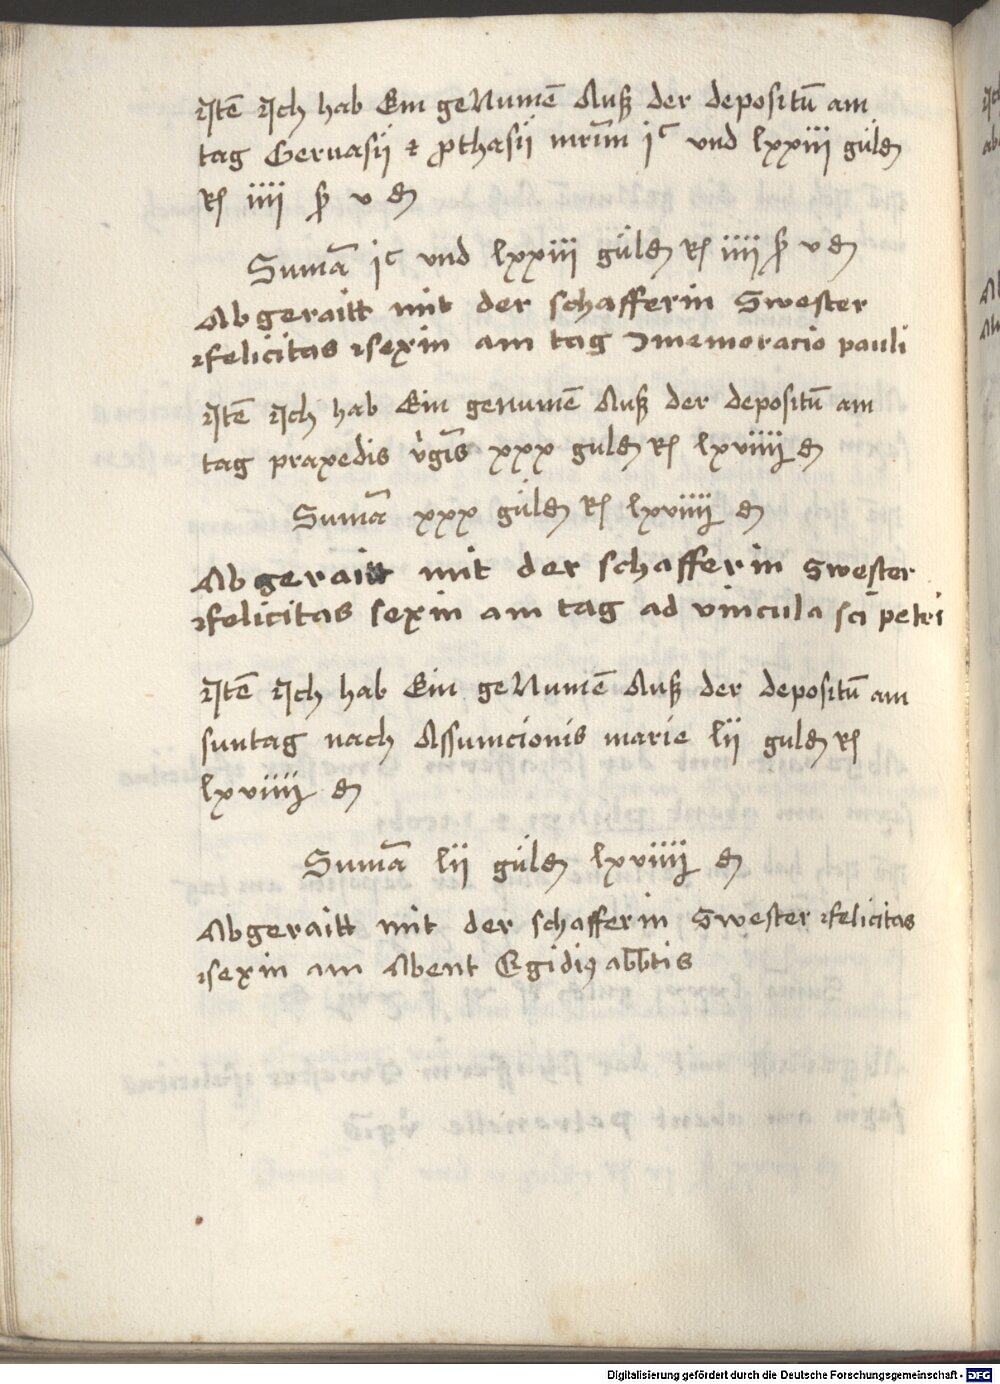 Jtē Jch hab Ein geNumē Auß der depositū am
tag Geruasij et prothasij mrīm jc vnd lxxiii güldn
Rh iiii ß v dn
Sumā jc vnd lxxiii güldn Rh iiii ß v dn
Abgeraitt mit der schafferin Swester
felicitas sexin am tag 9memoracio pauli
Jtē Jch hab Ein genumē Auß der depositū am
tag praxedis v̊gīs xxx guldn Rh lxviiij dn
Sumā xxx güldn Rh lxviiij dn
Abgeraitt mit der schafferin Swester
felicitas sexin am tag ad vincula scī petri
Jtē Jch hab Ein geNumē Auß der depositū am
suntag nach Assumcionis marie lij guldn Rh
lxviiij dn
Sumā lij güldn lxviiij dn
Abgeraitt mit der schafferin Swester felicitas
sexin am Abent Egidi9 abb̄tis
Digitalisierung gefördert durch die Deutsche Forschungsgemeinschaft - DFG